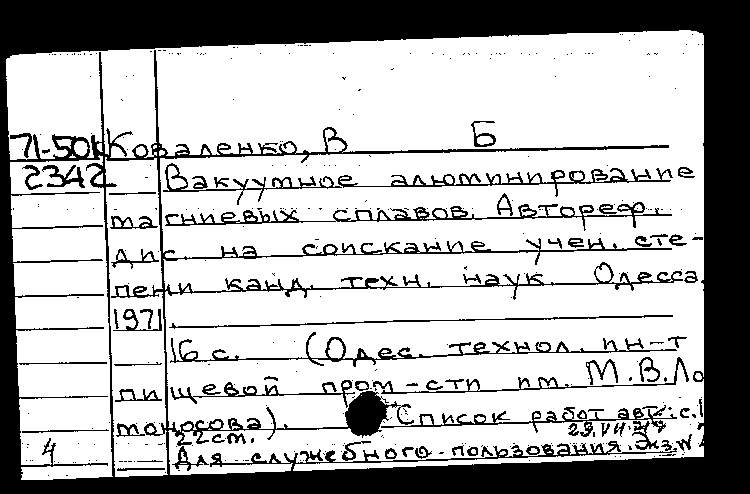 71-50к Коваленко, В Б
2342 Вакуумное алюминирование
магниевых сплавов. Автореф.
дис. на соискание учен. сте-
пени канд. техн. наук. Одесса,
1971.
16 с. (Одес. технол. ин-т
пищевой пром-сти им. М.В.Ло
моносова). Список работ авт.: с.1
22 см.
4 Для служебного пользования. Экз. №